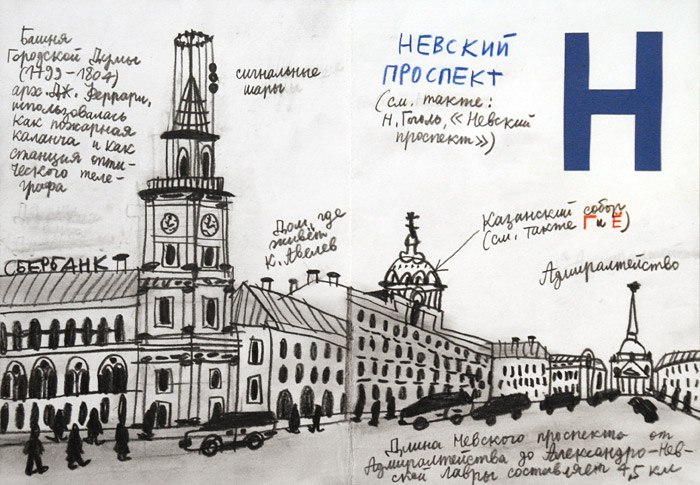 Башня
Городской Думы
(1799-1804)
арх. Дж. Феррари,
использовалась
как пожарная
каланча и как
станция опти-
ческого теле-
графа
сигнальные
шары
НЕВСКИЙ
ПРОСПЕКТ
(см. также:
Н. Гоголь, «Невский
проспект»)
Н
Дом, где
живёт
К. Авелев
Казанский собор
(см. также Г и Ё)
Адмиралтейство
СБЕРБАНК
Длина Невского проспекта от
Адмиралтейства до Александро-Нев-
ской лавры составляет 4,5 км